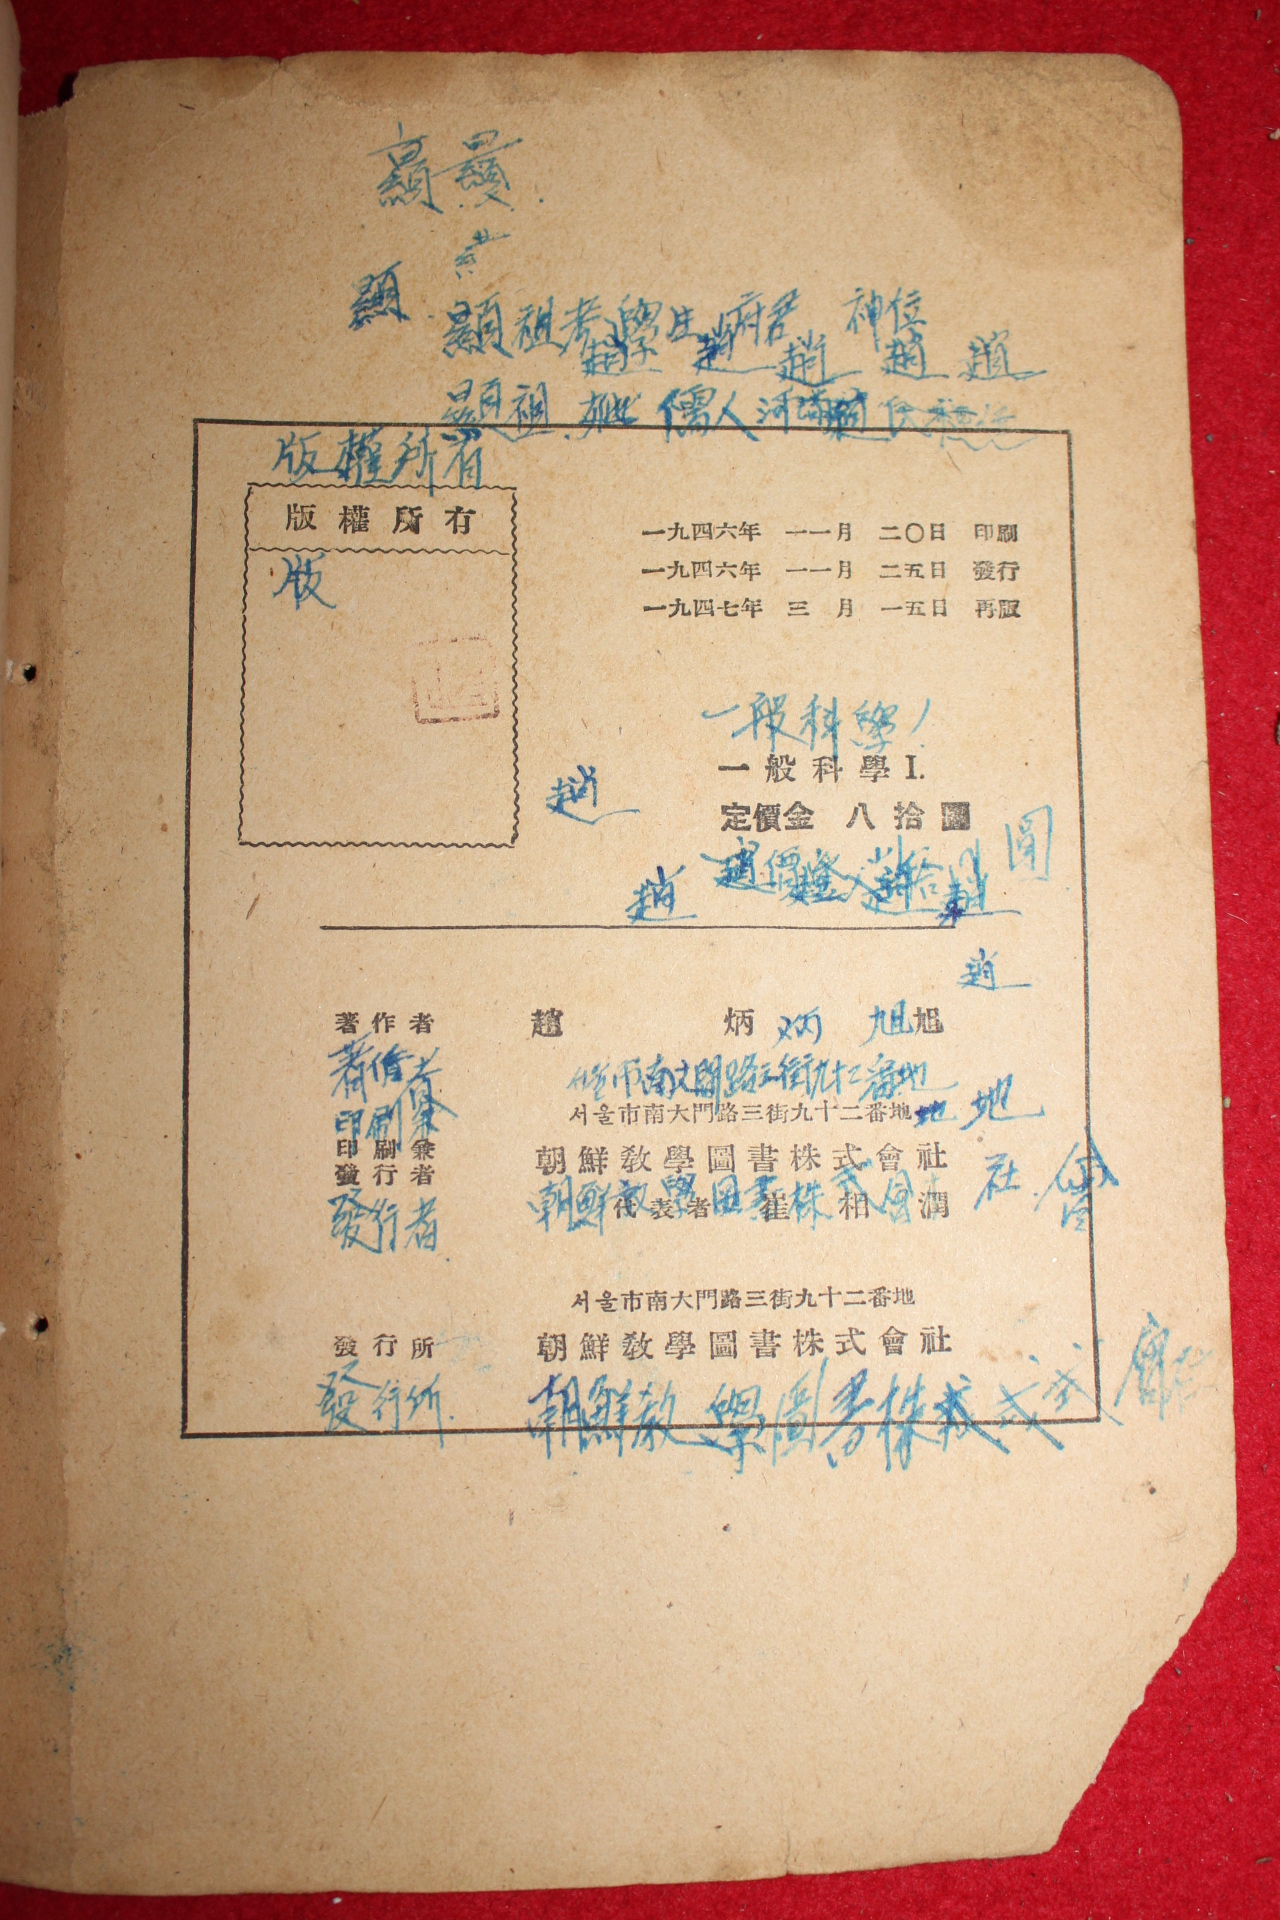 顯
顯祖考學生府君 神位
趙 趙 趙 趙 趙
顯祖 妣 儒人 河 趙氏
版權所有
版權所有
版
一九四六年 一一月 二〇日 印刷
一九四六年 一一月 二五日 發行
一九四七年 三 月 一五日 再版
一般科學 1
一般科學 I.
定價金 八拾圓
圓
趙
趙
趙
著作者 趙 炳 旭
炳 旭
著作者
서울市南大門路三街九十二番地
地 地
印刷兼
印刷兼
發行者
朝鮮敎學圖書株式會社
代表者 崔 相 潤
發行者
朝鮮敎學圖書株式會 社 會
서울市南大門路三街九十二番地
發行所 朝鮮敎學圖書株式會社
發行所 朝鮮敎學圖書株式式式